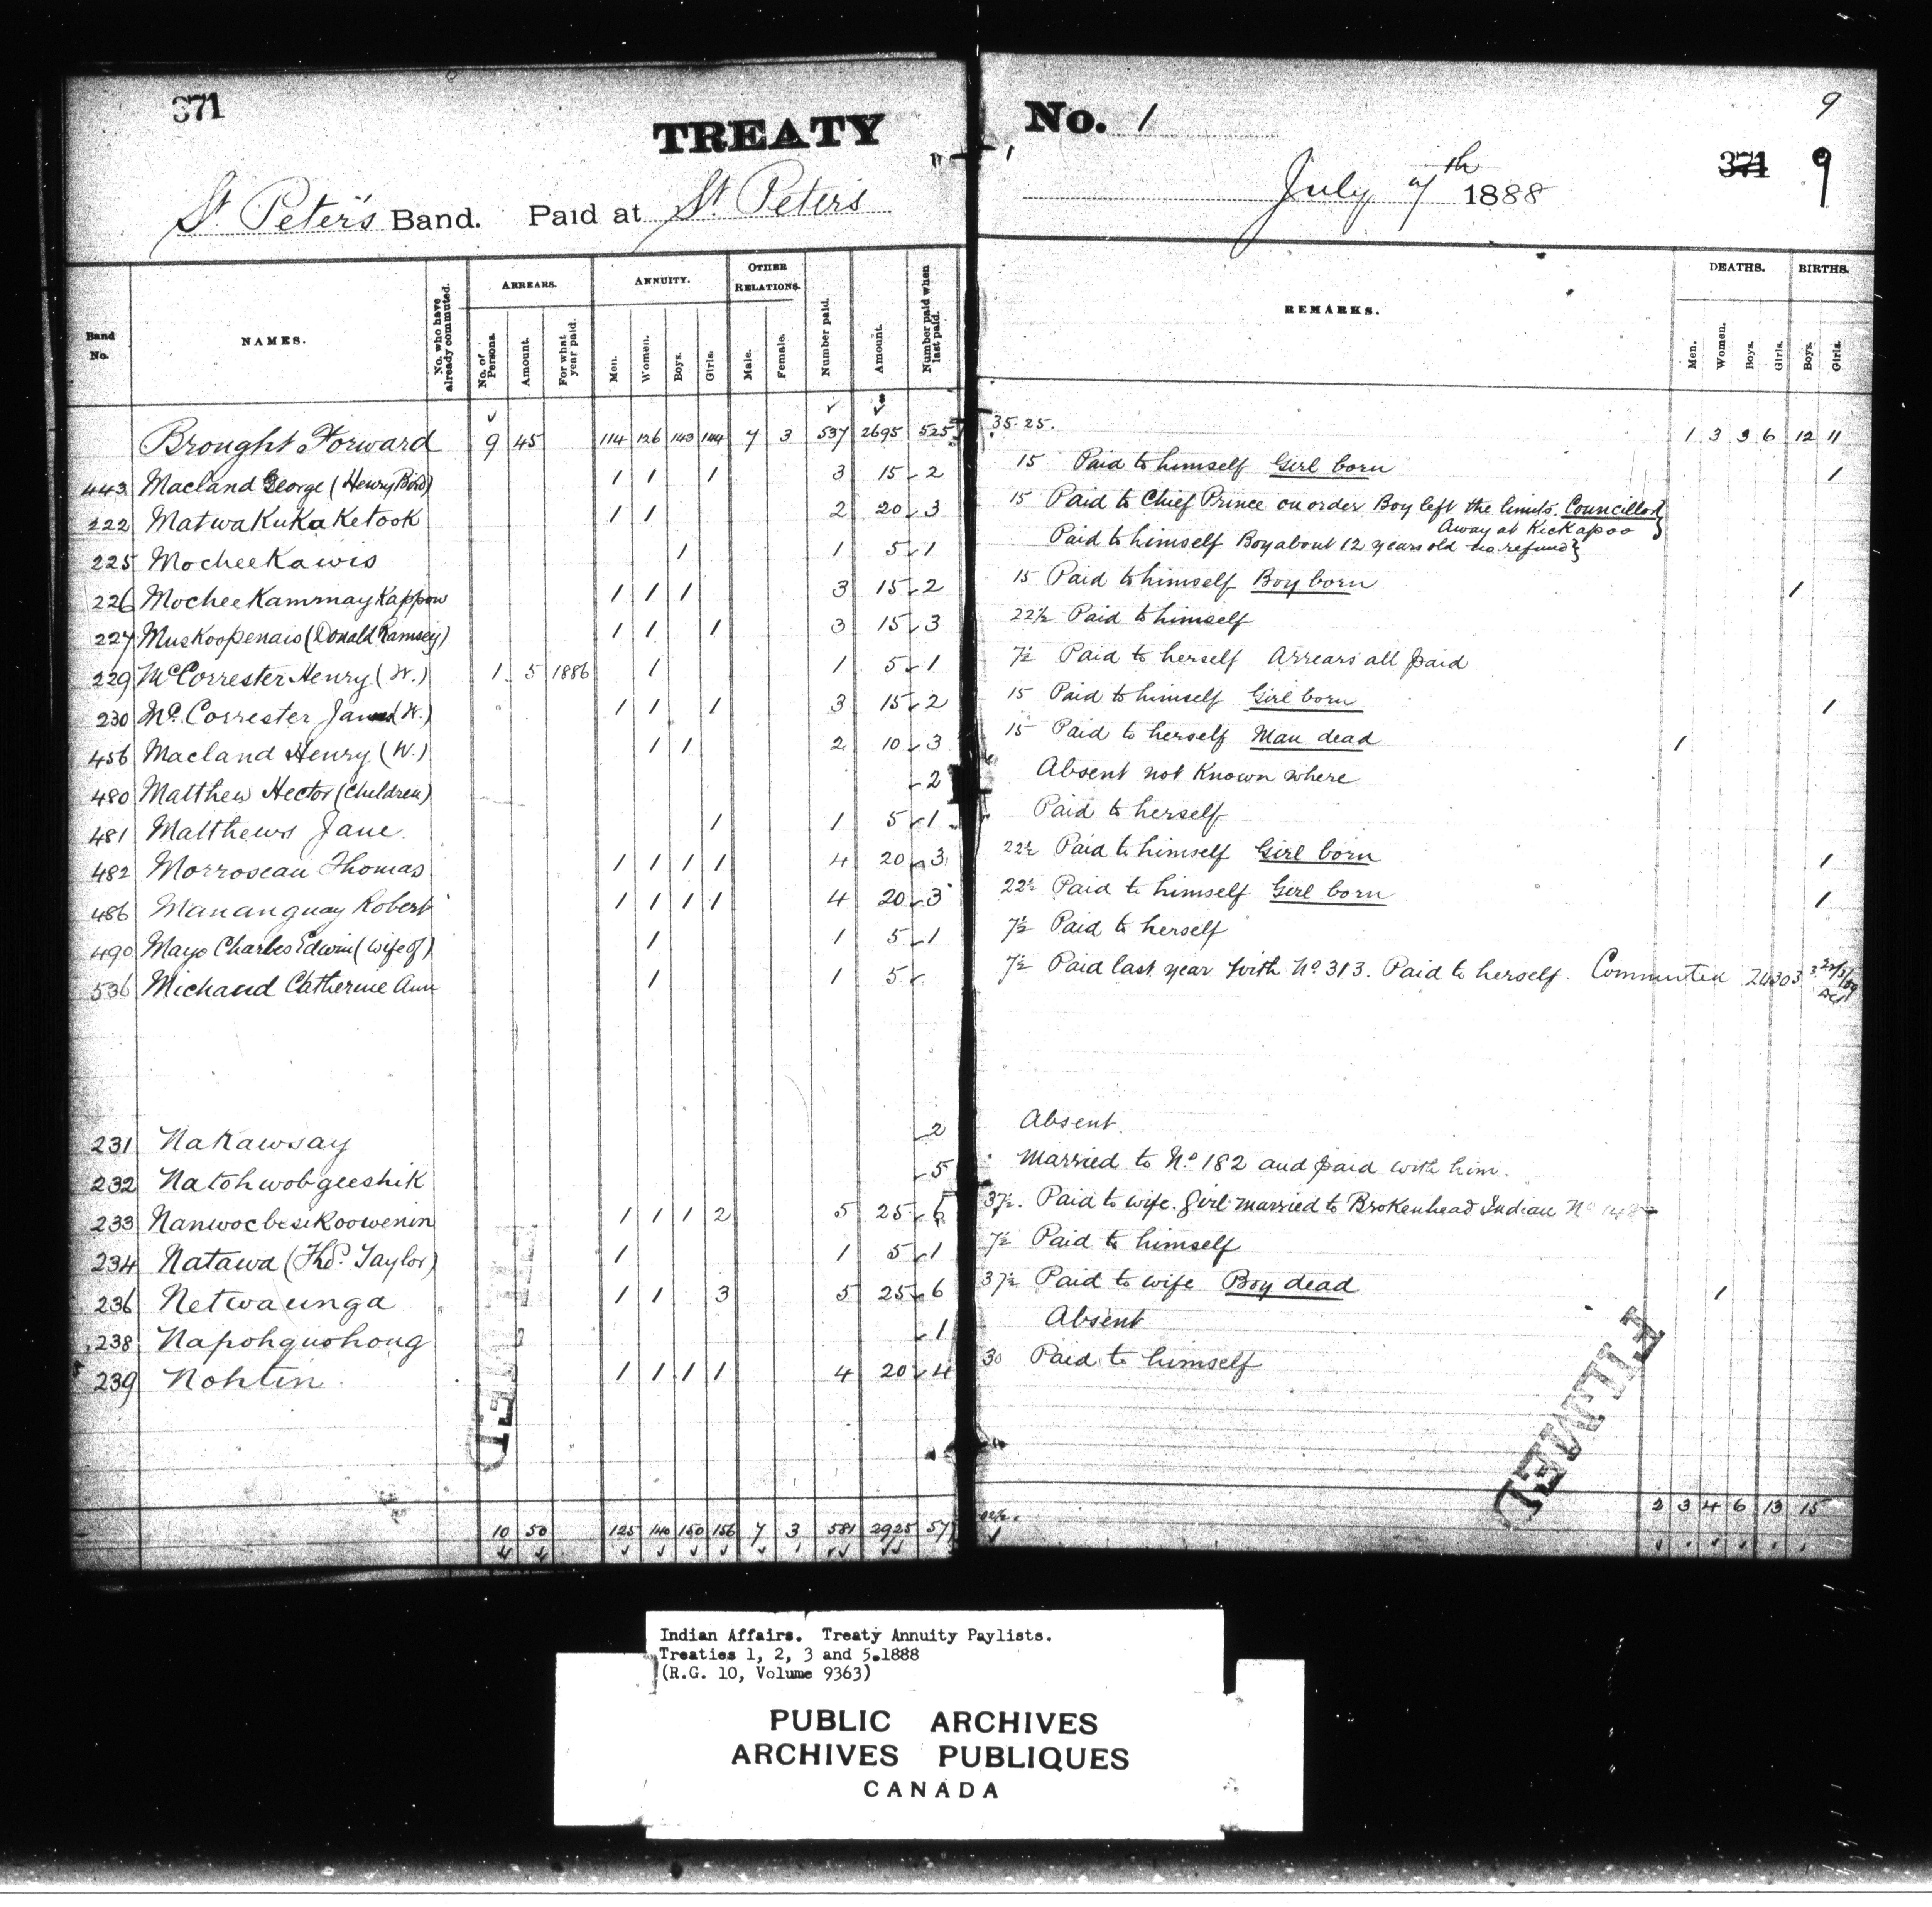 371
TREATY No. 1 9
371 9
St Peter's Band. Paid at St Peter's July 7th 1888
Band No. NAMES. No. who have already commuted. ARREARS. No. of Persons. Amount. For what year paid. ANNUITY. Men. Women. Boys. Girls. OTHER RELATIONS. Male. Female. Number paid. Amount. Number paid when last paid. REMARKS. DEATHS. Men. Women. Boys. Girls. BIRTHS. Boys. Girls.
Brought Forward 9 45 114 126 143 144 7 3 537 2695 525 35.25. 1 3 3 6 12 11
443 Macland George (Henry Bird) 1 1 1 3 15 2 15 Paid to himself Girl born 1
222 MatwaKuKaKetook 1 1 2 20 3 15 Paid to Chief Prince on order Boy left the limits. Councillor
Away at Kickapoo
225 MocheeKawis 1 1 5 1 Paid to himself Boy about 12 years old no refund
226 MocheeKammayKappow 1 1 1 3 15 2 15 Paid to himself Boy born 1
227 Muskoopenais (Donald Ramsey) 1 1 1 3 15 3 22½ Paid to himself
229 McCorrester Henry (W.) 1 5 1886 1 1 5 1 7½ Paid to herself Arrears all paid
230 Mc.Correster James (W.) 1 1 1 3 15 2 15 Paid to himself Girl born 1
456 Macland Henry (W.) 1 1 2 10 3 15 Paid to herself Man dead 1
480 Matthew Hector (Children) 2 Absent not Known where
481 Matthews Jane 1 1 5 1 Paid to herself
482 Morroseau Thomas 1 1 1 1 4 20 3 22½ Paid to himself Girl born 1
486 Mananguay Robert 1 1 1 1 4 20 3 22½ Paid to himself Girl born 1
490 Mayo Charles Edwin (wife of) 1 1 5 1 7½ Paid to herself
536 Michaud Catherine Ann 1 1 5 7½ Paid last year with No. 313. Paid to herself. Commuted 24303
231 Nakawsay 2 Absent.
232 Natohwobgeeshik 5 Married to No. 182 and paid with him.
233 NanwocbeseKoowenin 1 1 1 2 5 25 6 37½. Paid to wife. Girl married to Brokenhead Indian No
234 Natawa (Thos. Taylor) 1 1 5 1 7½ Paid to himself
236 Netwaunga 1 1 3 5 25 6 37½ Paid to wife Boy dead 1
238 Napohquohong 1 Absent
239 Nohtin 1 1 1 1 4 20 4 30 Paid to himself
FILMED
10 50 125 140 150 156 7 3 581 2925 57 2 3 4 6 13 15
Indian Affairs. Treaty Annuity Paylists.
Treaties 1, 2, 3 and 5.1888
(R.G. 10, Volume 9363)
PUBLIC ARCHIVES
ARCHIVES PUBLIQUES
CANADA